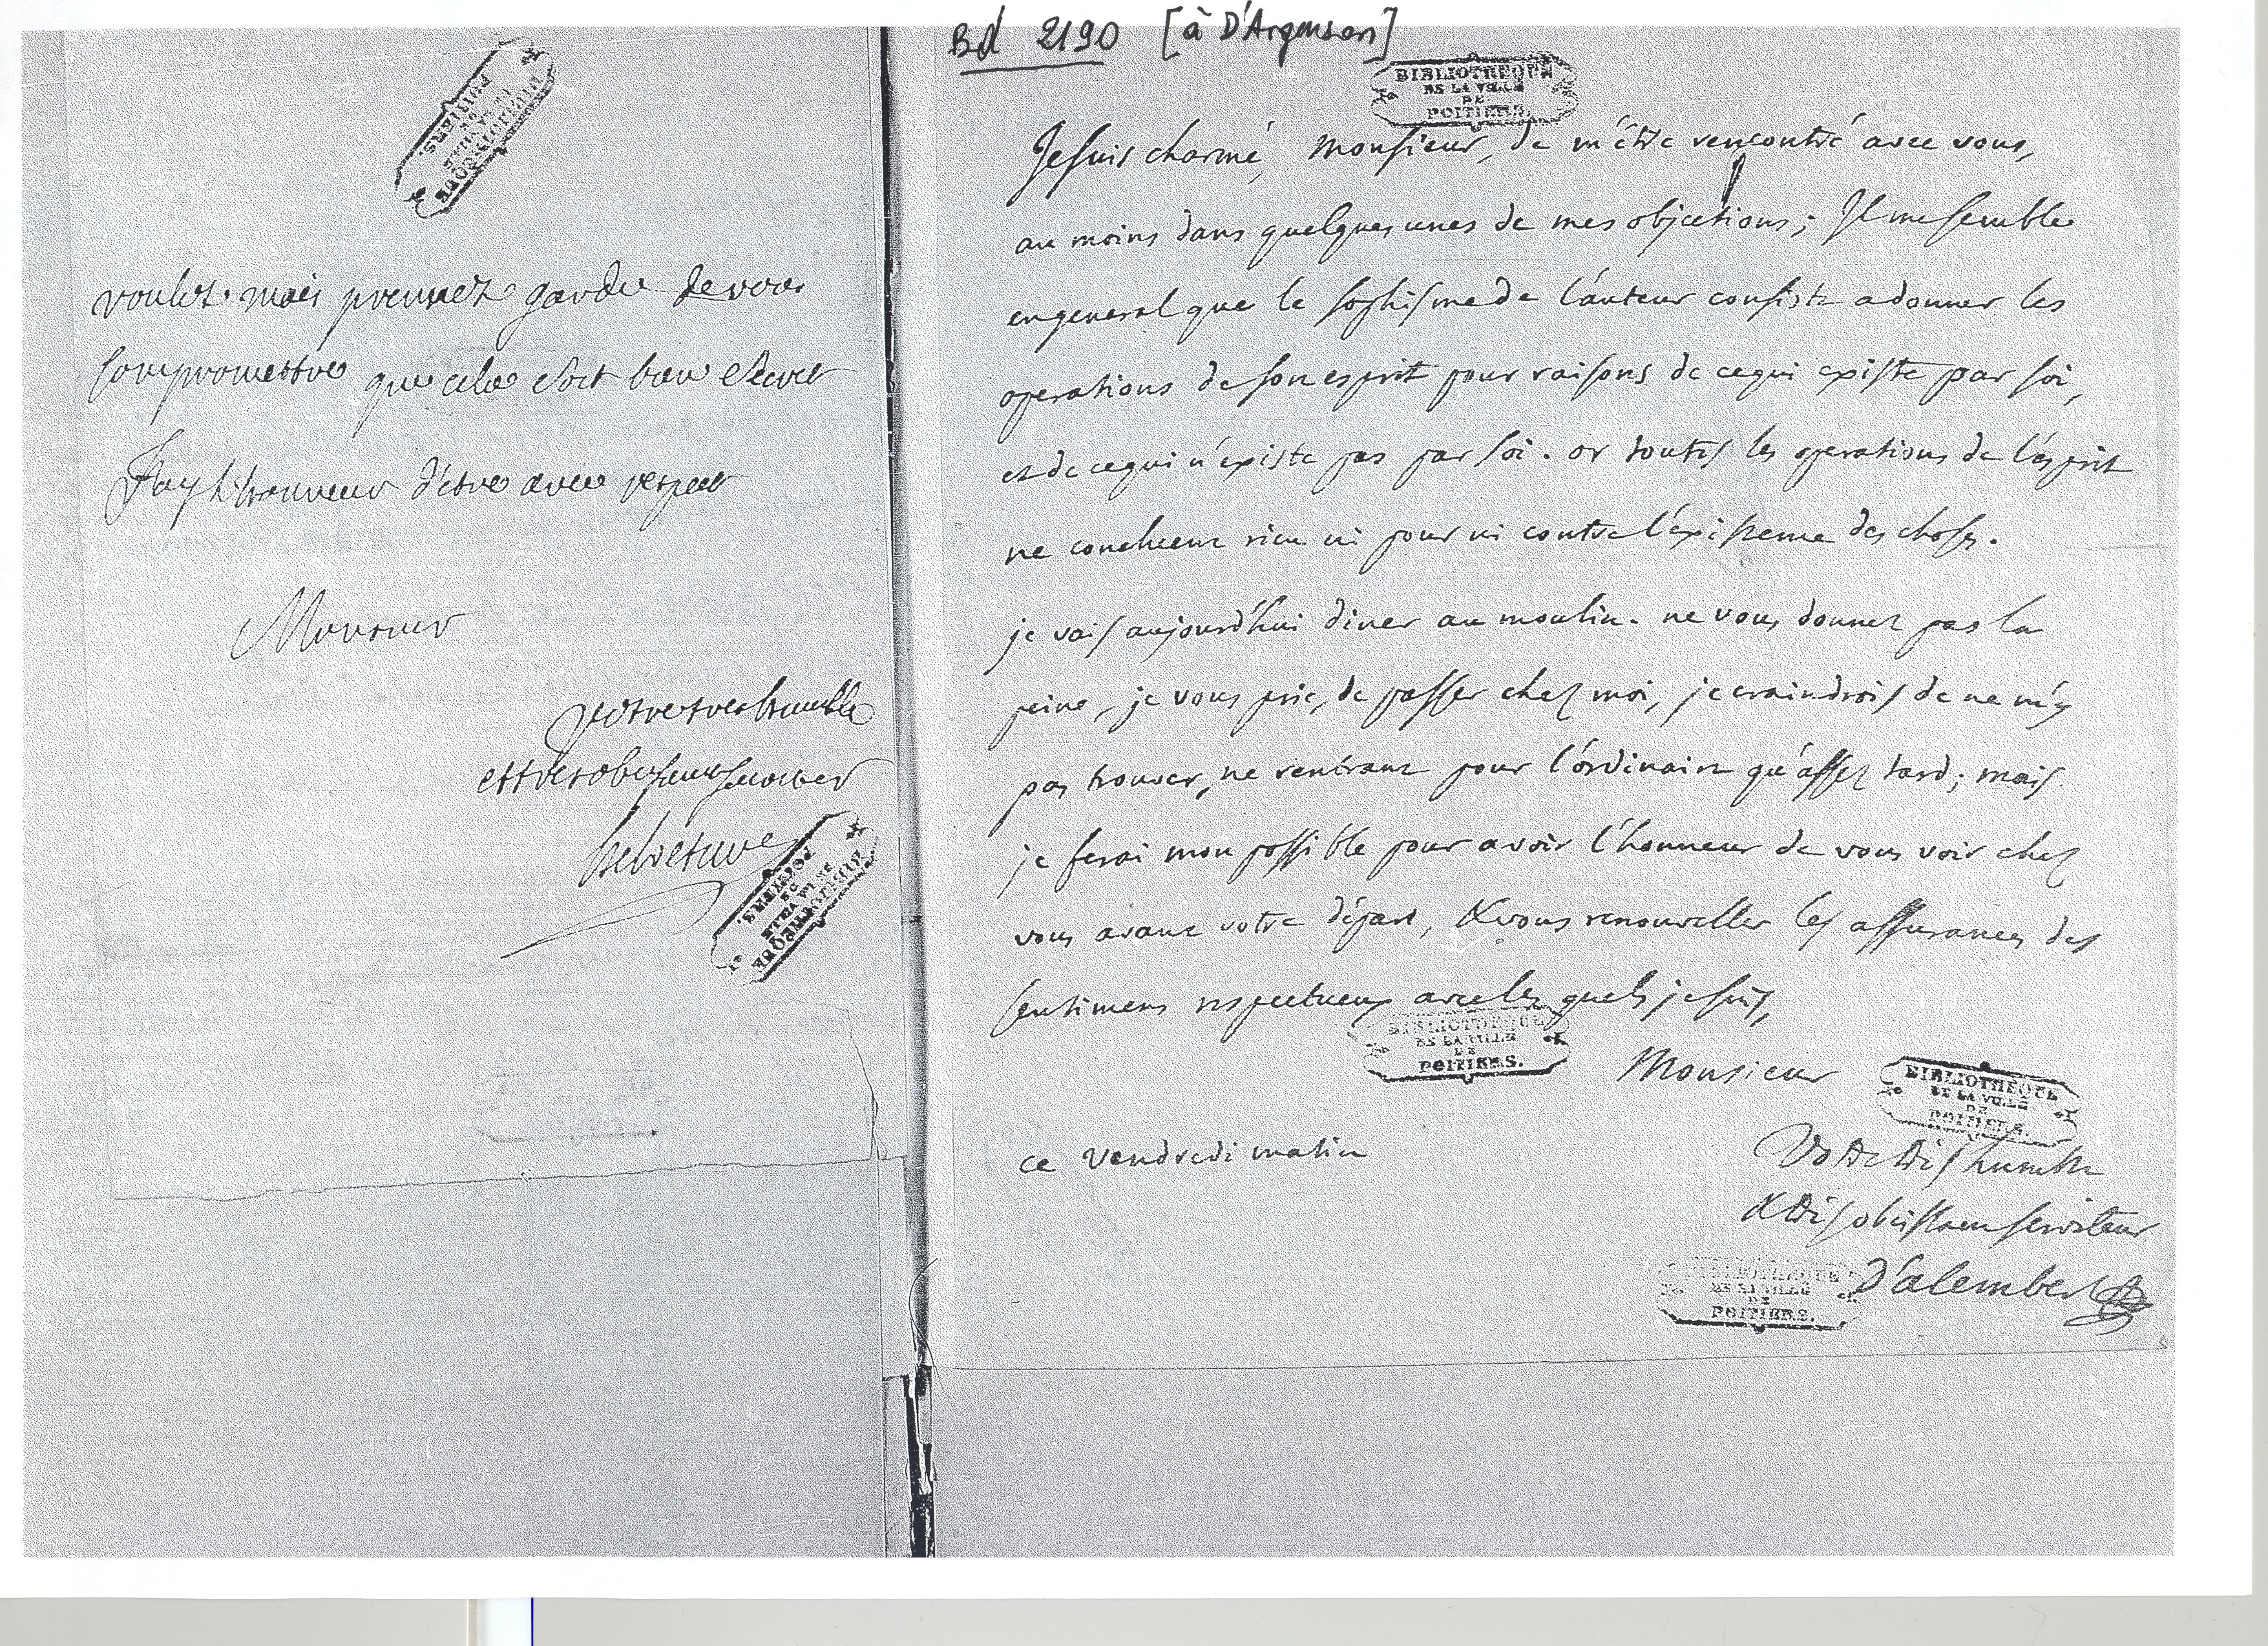 Bd 2190 [à D'Argenson]
BIBLIOTHEQUE
DE LA VILLE
DE
POITIERS.
voulez mais prennez garde de vous
compromettre que cela soit bien secret
J'ay l'honneur d'etre avec respect
Monsieur
votre tres humble
et tres obeissant serviteur
helvetius
BIBLIOTHEQUE
DE LA VILLE
DE
POITIERS.
BIBLIOTHEQUE
DE LA VILLE
DE
POITIERS.
Je suis charmé, Monsieur, de m'être rencontré avec vous,
au moins dans quelques unes de mes objections; Il me semble
en general que le sophisme de l'auteur consiste a donner les
operations de son esprit pour raisons de ce qui existe par soi,
et de ce qui n'existe pas par soi. or toutes les operations de l'esprit
ne concluent rien ni pour ni contre l'existence des choses.
je vais aujourd'hui diner au moulin. ne vous donnez pas la
peine, je vous prie, de passer chez moi, je craindrois de ne m'y
pas trouver, ne rentrant pour l'ordinaire qu'assez tard; mais
je ferai mon possible pour avoir l'honneur de vous voir chez
vous avant votre départ, & vous renouveller les assurances des
sentimens respectueux avec les quels je suis,
BIBLIOTHEQUE
DE LA VILLE
DE
POITIERS.
Monsieur
BIBLIOTHEQUE
DE LA VILLE
DE
POITIERS.
ce vendredi matin
Votre très humble
& très obeissant serviteur
D'alembert
BIBLIOTHEQUE
DE LA VILLE
DE
POITIERS.